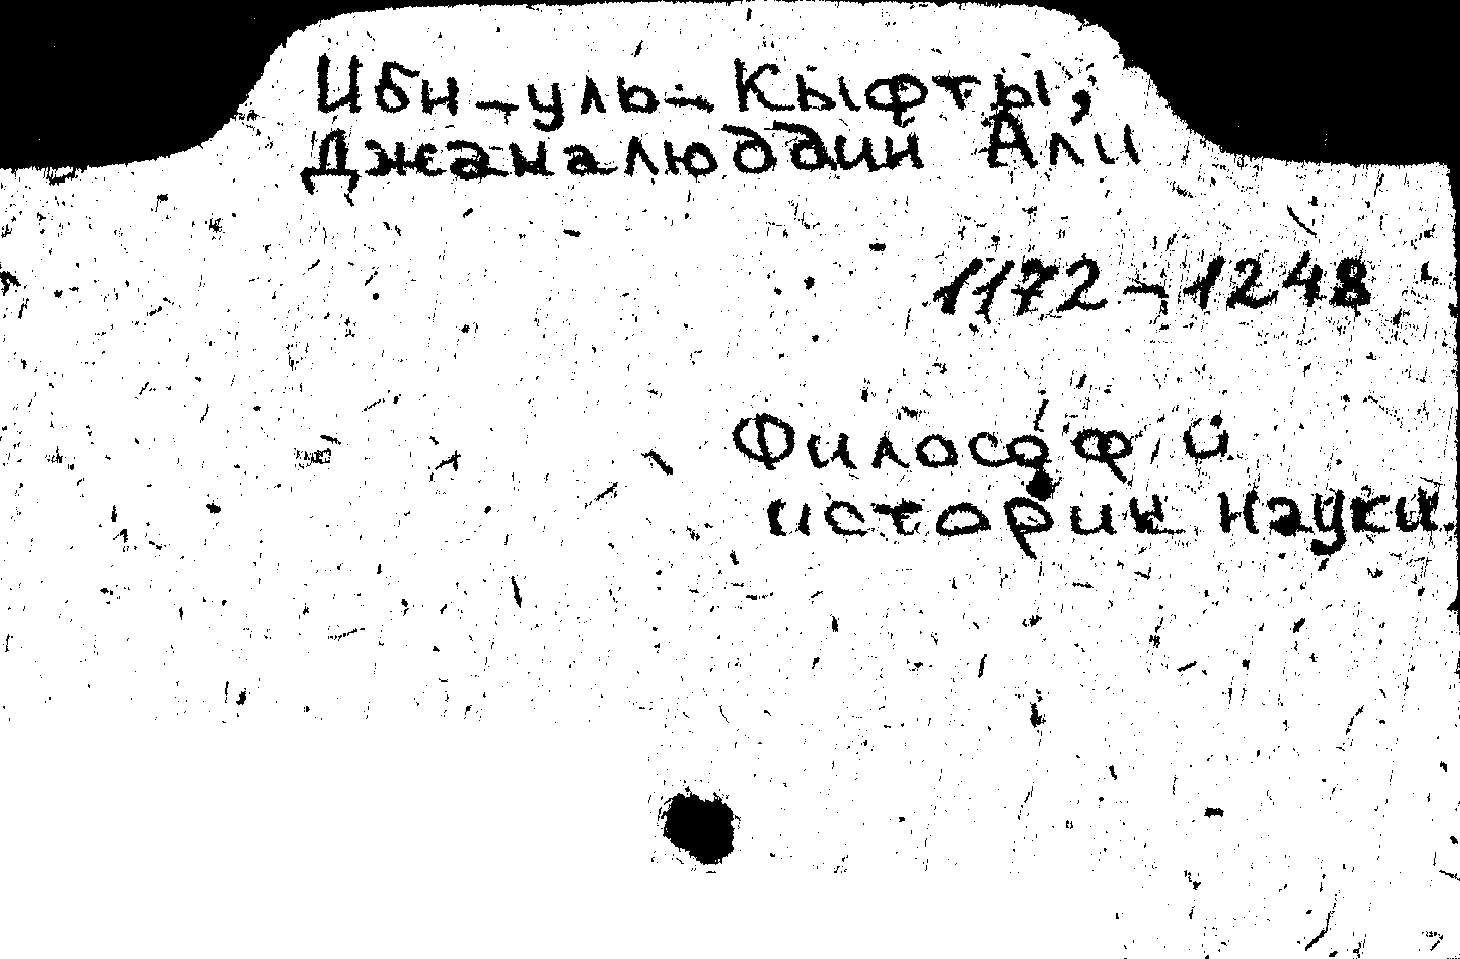 Ибн-уль-Кыфты,
Джамалюддин Али
1172-1248
Философ и
историк науки.